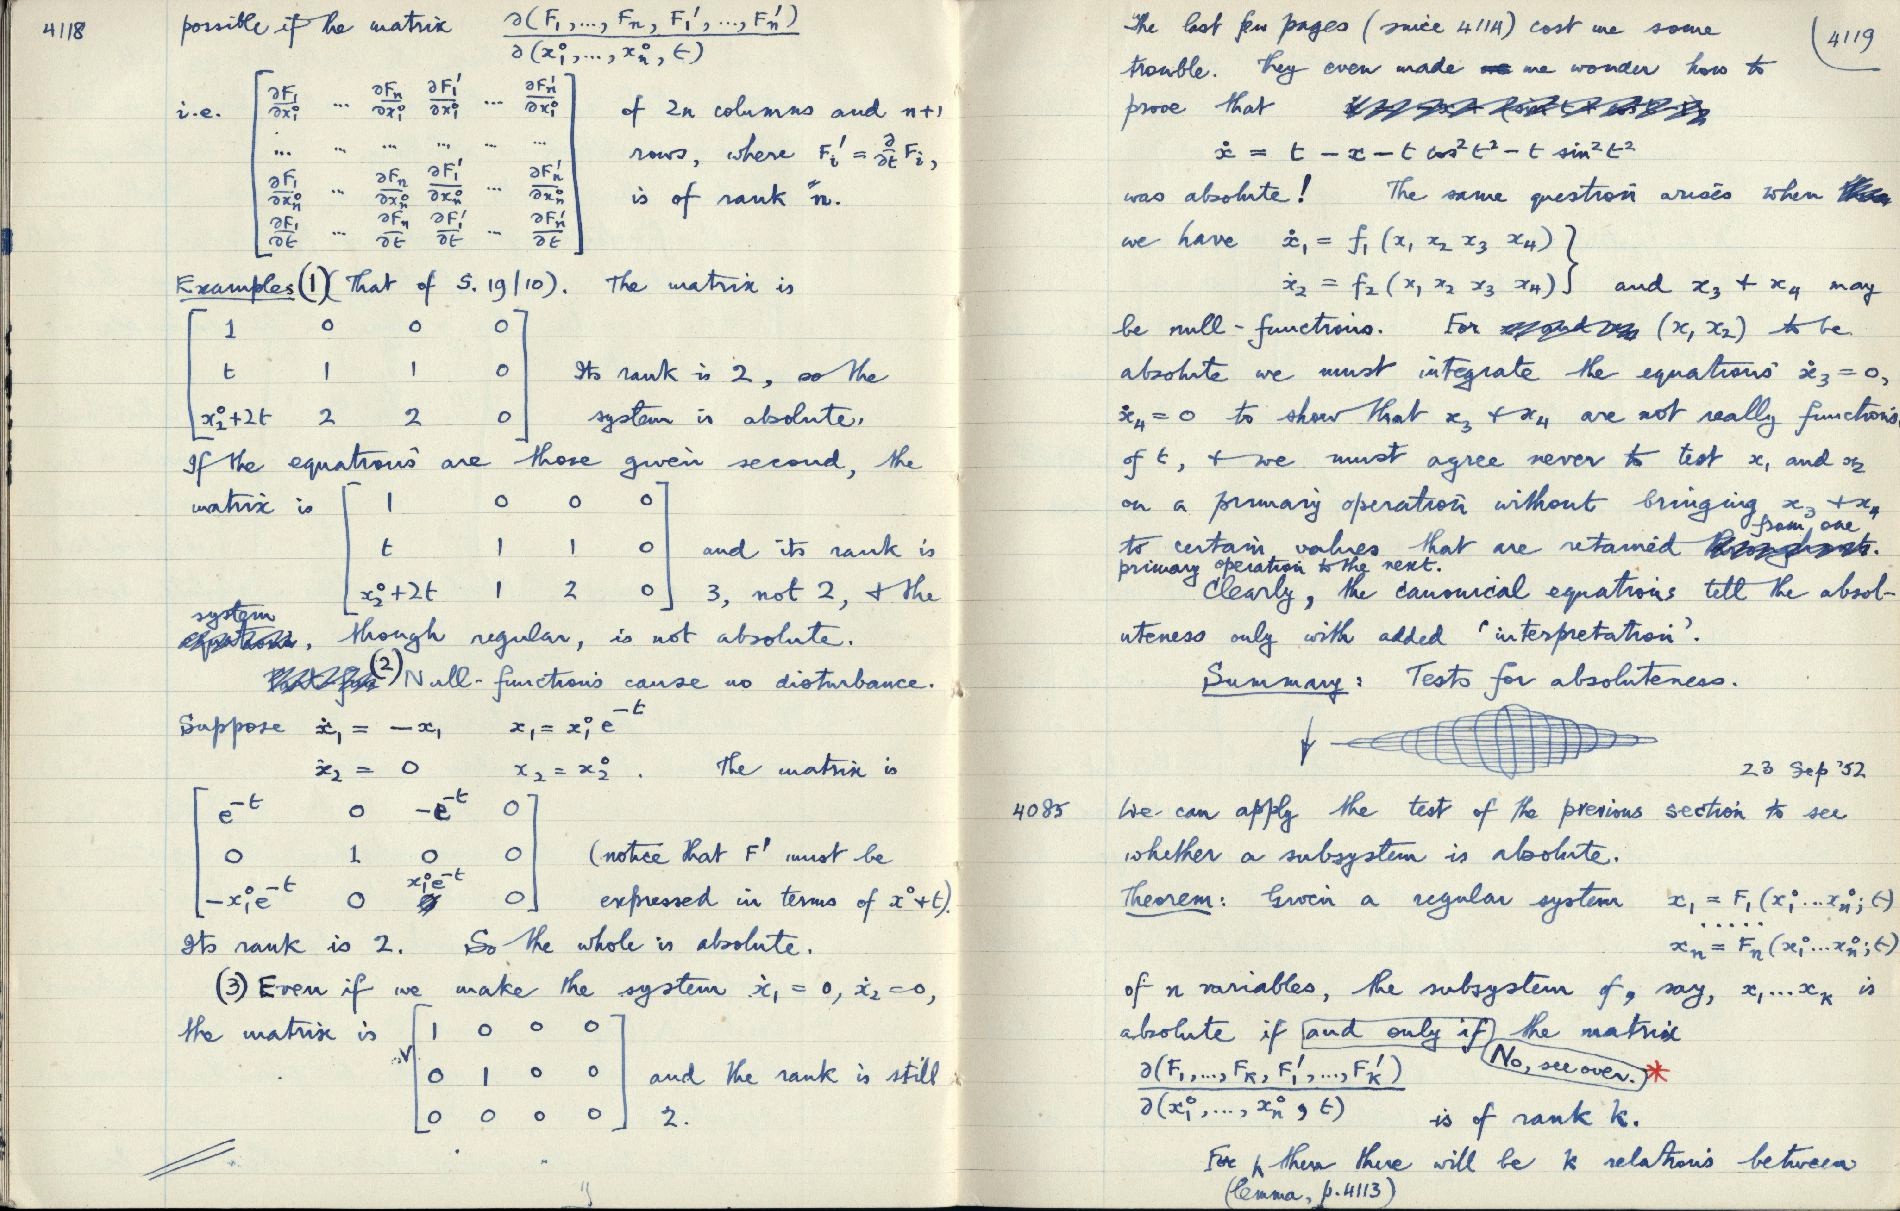 4118
possible if the matrix ∂(F₁,...,Fₙ, F₁′,...,Fₙ′) / ∂(x₁°,...,xₙ°, t)
i.e. [ ∂F₁/∂x₁° ... ∂Fₙ/∂x₁° ∂F₁′/∂x₁° ... ∂Fₙ′/∂x₁° ] of 2n columns and n+1
... ... ... ... ... ... rows, where Fᵢ′ = ∂/∂t Fᵢ,
∂F₁/∂xₙ° ... ∂Fₙ/∂xₙ° ∂F₁′/∂xₙ° ... ∂Fₙ′/∂xₙ° is of rank n.
∂F₁/∂t ... ∂Fₙ/∂t ∂F₁′/∂t ... ∂Fₙ′/∂t
Examples (1) (That of S. 19/10). The matrix is
1 0 0 0
t 1 1 0 Its rank is 2, so the
x₂°+2t 2 2 0 system is absolute.
If the equations are those given second, the
matrix is 1 0 0 0
t 1 1 0 and its rank is
x₂°+2t 1 2 0 3, not 2, + the
system, though regular, is not absolute.
(2) Null-functions cause no disturbance.
Suppose ẋ₁ = −x₁ x₁ = x₁°e⁻ᵗ
ẋ₂ = 0 x₂ = x₂°. The matrix is
e⁻ᵗ 0 −e⁻ᵗ 0
0 1 0 0 (notice that F′ must be
−x₁°e⁻ᵗ 0 x₁°e⁻ᵗ 0 expressed in terms of x°+t).
Its rank is 2. So the whole is absolute.
(3) Even if we make the system ẋ₁ = 0, ẋ₂ = 0,
the matrix is 1 0 0 0
0 1 0 0 and the rank is still
0 0 0 0 2.
4119
The last few pages (since 4114) cost me some
trouble. They even made me wonder how to
prove that
ẋ = t − x − t cos²t² − t sin²t²
was absolute! The same question arises when
we have ẋ₁ = f₁(x₁ x₂ x₃ x₄)
ẋ₂ = f₂(x₁ x₂ x₃ x₄) } and x₃ + x₄ may
be null-functions. For (x₁ x₂) to be
absolute we must integrate the equations ẋ₃ = 0,
ẋ₄ = 0 to show that x₃ + x₄ are not really functions
of t, + we must agree never to test x₁ and x₂
on a primary operation without bringing x₃ + x₄
to certain values that are retained from one
primary operation to the next.
Clearly, the canonical equations tell the absol-
uteness only with added 'interpretation'.
Summary: Tests for absoluteness.
23 Sep '52
4085 We can apply the test of the previous section to see
whether a subsystem is absolute.
Theorem: Given a regular system x₁ = F₁(x₁°...xₙ°; t)
.....
xₙ = Fₙ(x₁°...xₙ°; t)
of n variables, the subsystem of, say, x₁...xₖ is
absolute if and only if the matrix
No, see over. *
∂(F₁,...,Fₖ, F₁′,...,Fₖ′) / ∂(x₁°,...,xₙ°, t) is of rank k.
For then there will be k relations between
(Lemma, p.4113)